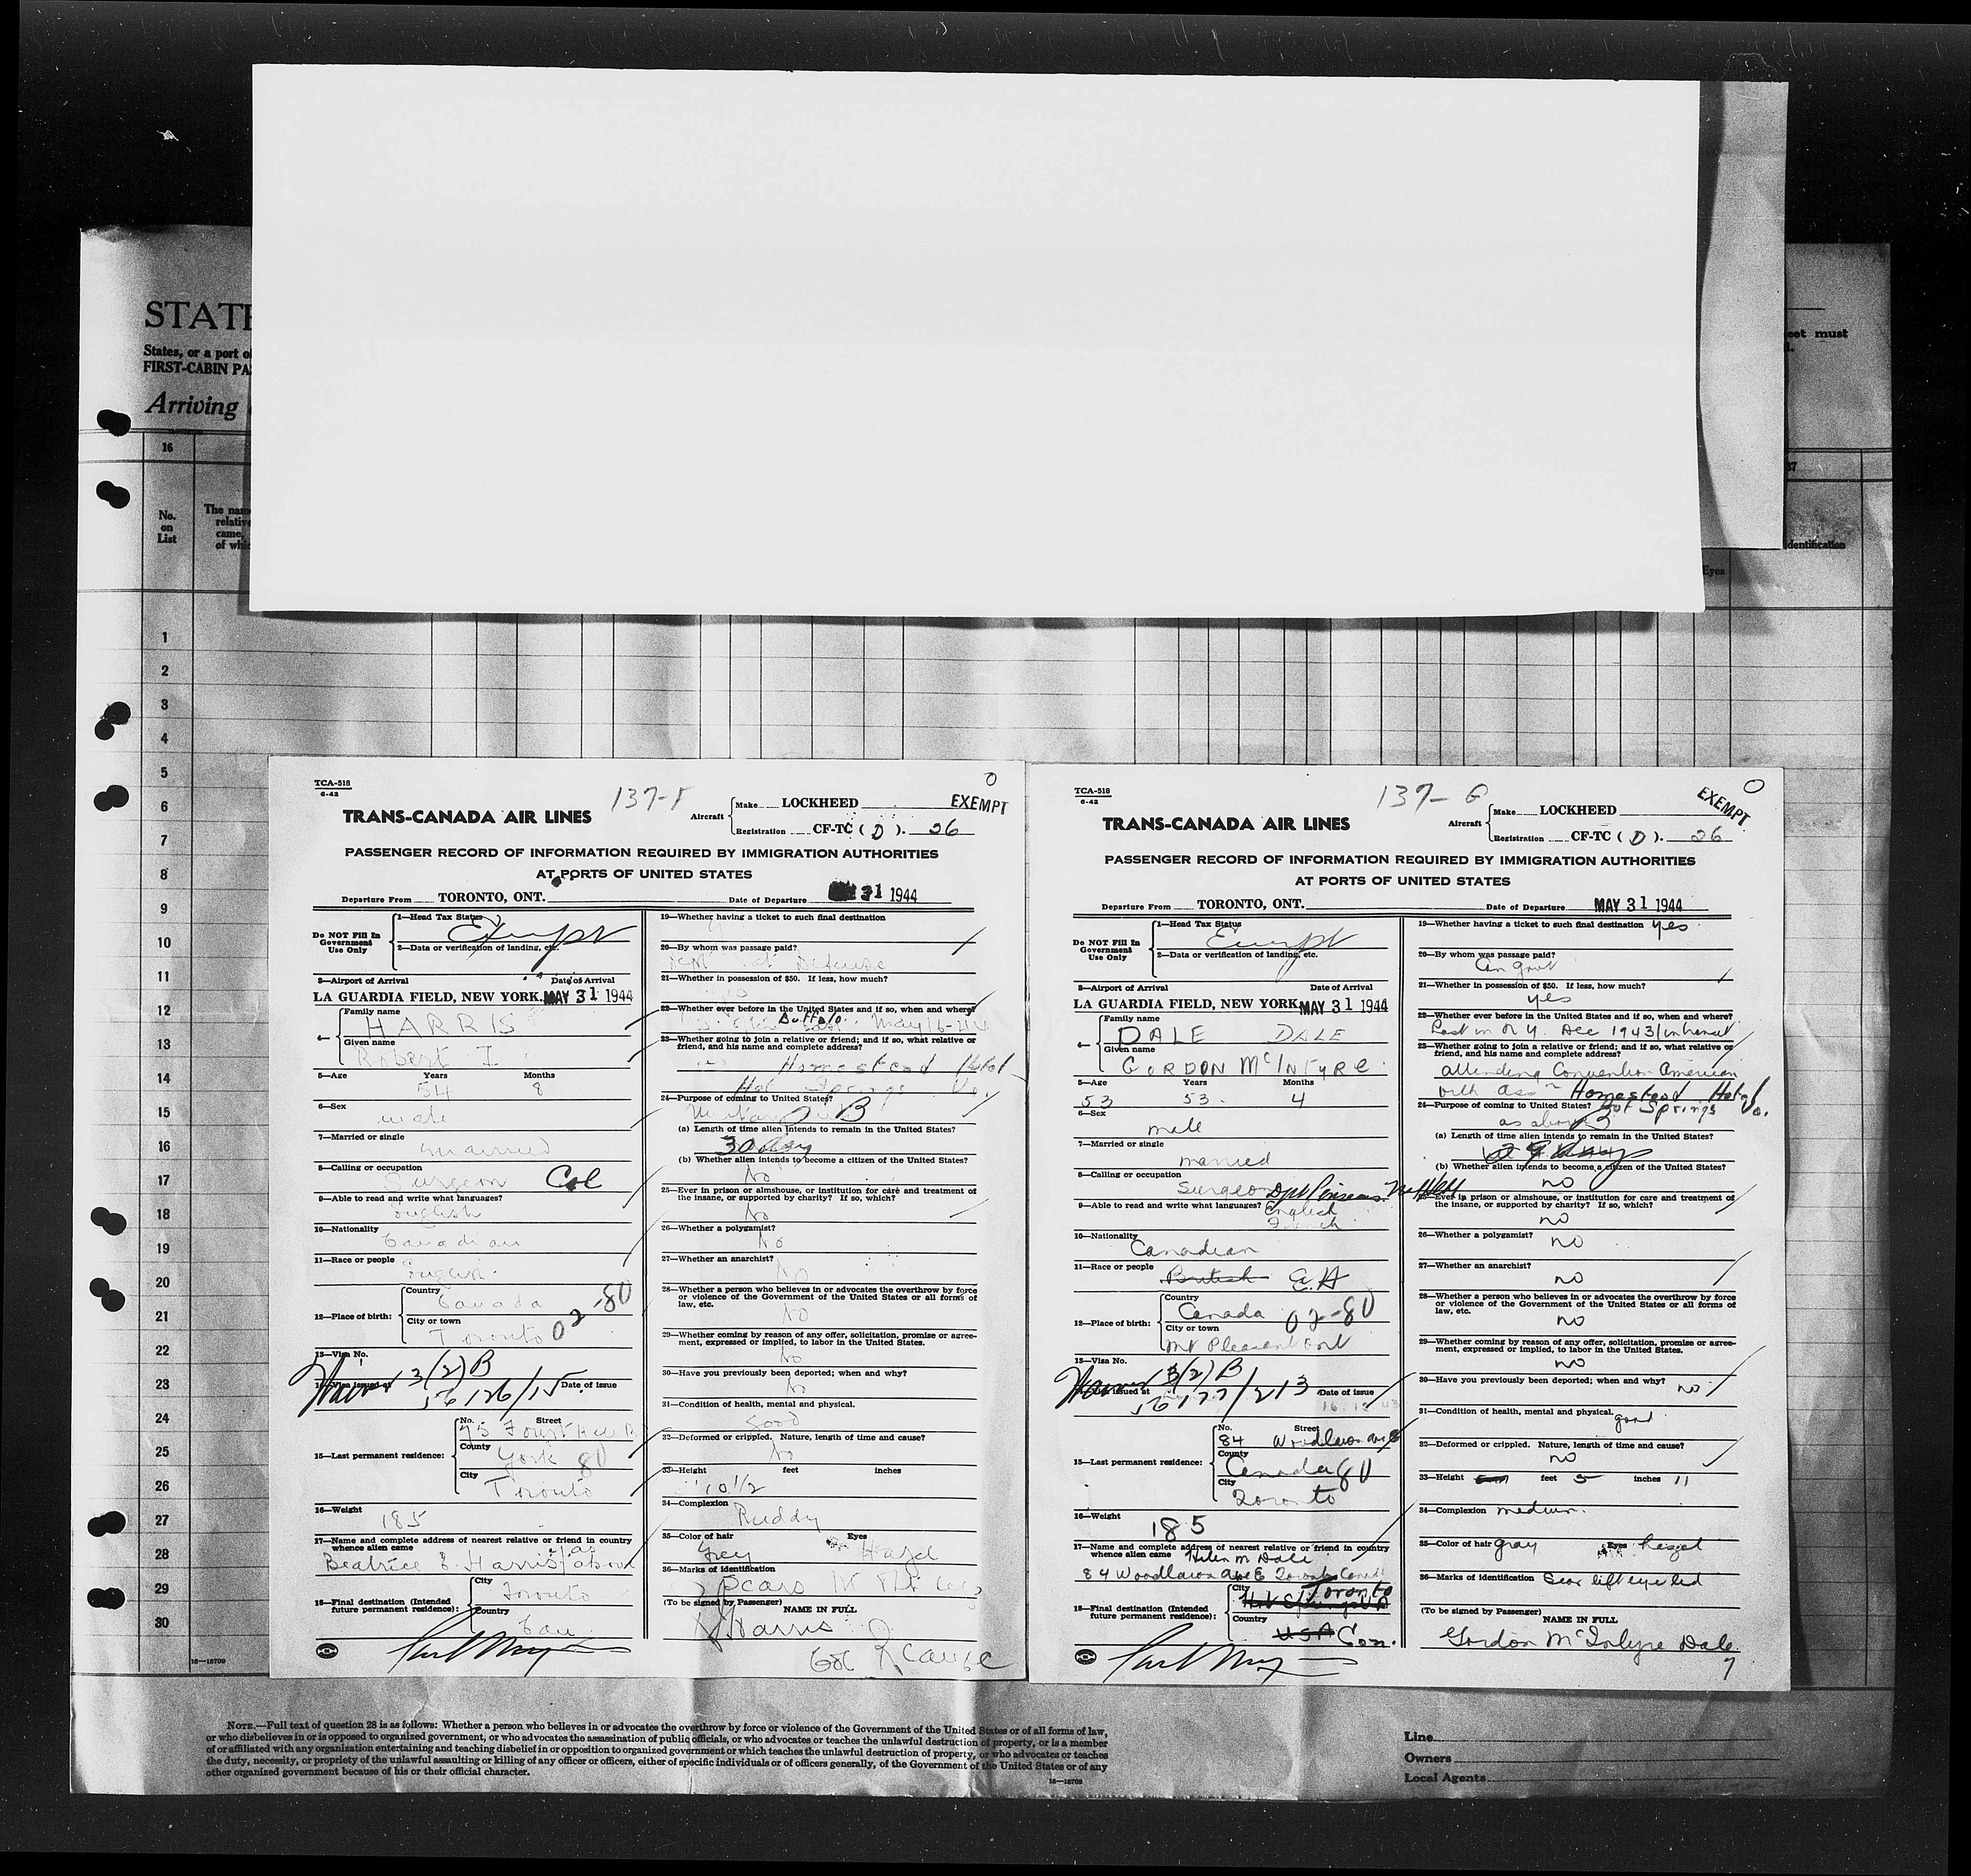 STATE
States, or a port of
FIRST-CABIN PA
Arriving
eet must
16
No.
on
List
The nam
relative
came,
of whic
dentification
Eyes
1
2
3
4
5
6
7
8
9
10
11
12
13
14
15
16
17
18
19
20
21
22
23
24
25
26
27
28
29
30
16—18709
TCA-518
6-42
137-F
EXEMPT
TRANS-CANADA AIR LINES
Aircraft
Make LOCKHEED
Registration CF-TC ( D ). 26
PASSENGER RECORD OF INFORMATION REQUIRED BY IMMIGRATION AUTHORITIES
AT PORTS OF UNITED STATES
Departure From TORONTO, ONT. Date of Departure 31 1944
Do NOT Fill In
Government
Use Only
1—Head Tax Status
Exempt
2—Data or verification of landing, etc.
3—Airport of Arrival Date of Arrival
LA GUARDIA FIELD, NEW YORK. MAY 31 1944
4—
Family name
HARRIS
Given name
Robert I
5—Age Years Months
54 8
6—Sex
male
7—Married or single
married
8—Calling or occupation
Surgeon Col
9—Able to read and write what languages?
English
10—Nationality
Canadian
11—Race or people
English
12—Place of birth:
Country
Canada
City or town
Toronto 02-80
13—Visa No.
3(2)B
14—Visa issued at Date of issue
56126/15
15—Last permanent residence:
No. Street
75 Forest Hill
County
York 80
City
Toronto
16—Weight
185
17—Name and complete address of nearest relative or friend in country
whence alien came
as
Beatrice E. Harris above
18—Final destination (Intended
future permanent residence):
City
Toronto
Country
Can
19—Whether having a ticket to such final destination
20—By whom was passage paid?
Dept Nat Defense
21—Whether in possession of $50. If less, how much?
22—Whether ever before in the United States and if so, when and where?
Buffalo May 16-44
23—Whether going to join a relative or friend; and if so, what relative or
friend, and his name and complete address?
Homestead Hotel
Hot Springs Va.
24—Purpose of coming to United States?
B
(a) Length of time alien intends to remain in the United States?
30 day
(b) Whether alien intends to become a citizen of the United States?
No
25—Ever in prison or almshouse, or institution for care and treatment of
the insane, or supported by charity? If so, which?
No
26—Whether a polygamist?
No
27—Whether an anarchist?
No
28—Whether a person who believes in or advocates the overthrow by force
or violence of the Government of the United States or all forms of
law, etc.
No
29—Whether coming by reason of any offer, solicitation, promise or agree-
ment, expressed or implied, to labor in the United States.
No
30—Have you previously been deported; when and why?
No
31—Condition of health, mental and physical.
Good
32—Deformed or crippled. Nature, length of time and cause?
No
33—Height feet inches
10 1/2
34—Complexion
Ruddy
35—Color of hair Eyes
Grey Hazel
36—Marks of identification
Scars
(To be signed by Passenger) NAME IN FULL
Harris
TCA-518
6-42
137-G
EXEMPT
TRANS-CANADA AIR LINES
Aircraft
Make LOCKHEED
Registration CF-TC ( D ). 26
PASSENGER RECORD OF INFORMATION REQUIRED BY IMMIGRATION AUTHORITIES
AT PORTS OF UNITED STATES
Departure From TORONTO, ONT. Date of Departure MAY 31 1944
Do NOT Fill In
Government
Use Only
1—Head Tax Status
Exempt
2—Data or verification of landing, etc.
3—Airport of Arrival Date of Arrival
LA GUARDIA FIELD, NEW YORK. MAY 31 1944
4—
Family name
DALE DALE
Given name
GORDON McINTYRE
5—Age Years Months
53 53. 4
6—Sex
male
7—Married or single
married
8—Calling or occupation
Surgeon
9—Able to read and write what languages? English
French
10—Nationality
Canadian
11—Race or people
British
12—Place of birth:
Country
Canada 02-80
City or town
Mt Pleasant Ont
13—Visa No.
3(2)B
issued at Date of issue
56177/213
15—Last permanent residence:
No. Street
84 Woodlawn ave E
County
Canada 80
City
Toronto
16—Weight
185
17—Name and complete address of nearest relative or friend in country
whence alien came Helen M Dale
84 Woodlawn Ave E Toronto Canada
18—Final destination (Intended
future permanent residence):
City
Toronto
Country
USA Can.
19—Whether having a ticket to such final destination yes
20—By whom was passage paid?
Can Govt
21—Whether in possession of $50. If less, how much?
yes
22—Whether ever before in the United States and if so, when and where?
Last in N Y. Dec 1943/in transit
23—Whether going to join a relative or friend; and if so, what relative or
friend, and his name and complete address?
attending Convention American
Orth Assn Homestead Hotel
24—Purpose of coming to United States? Hot Springs Va.
as above
(a) Length of time alien intends to remain in the United States?
(b) Whether alien intends to become a citizen of the United States?
no
25—Ever in prison or almshouse, or institution for care and treatment of
the insane, or supported by charity? If so, which?
no
26—Whether a polygamist?
no
27—Whether an anarchist?
no
28—Whether a person who believes in or advocates the overthrow by force
or violence of the Government of the United States or all forms of
law, etc.
no
29—Whether coming by reason of any offer, solicitation, promise or agree-
ment, expressed or implied, to labor in the United States.
no
30—Have you previously been deported; when and why? no
31—Condition of health, mental and physical. good
32—Deformed or crippled. Nature, length of time and cause?
no
33—Height feet 5 inches 11
34—Complexion medium.
35—Color of hair gray Eyes hazel
36—Marks of identification Scar left eye lid
(To be signed by Passenger)
NAME IN FULL
Gordon McIntyre Dale
7
NOTE.—Full text of question 28 is as follows: Whether a person who believes in or advocates the overthrow by force or violence of the Government of the United States or of all forms of law,
or who disbelieves in or is opposed to organized government, or who advocates the assassination of public officials, or who advocates or teaches the unlawful destruction of property, or is a member
of or affiliated with any organization entertaining and teaching disbelief in or opposition to organized government or which teaches the unlawful destruction of property, or who advocates or teaches
the duty, necessity, or propriety of the unlawful assaulting or killing of any officer or officers, either of specific individuals or of officers generally, of the Government of the United States or of any
other organized government because of his or their official character.
16—18709
Line
Owners
Local Agents